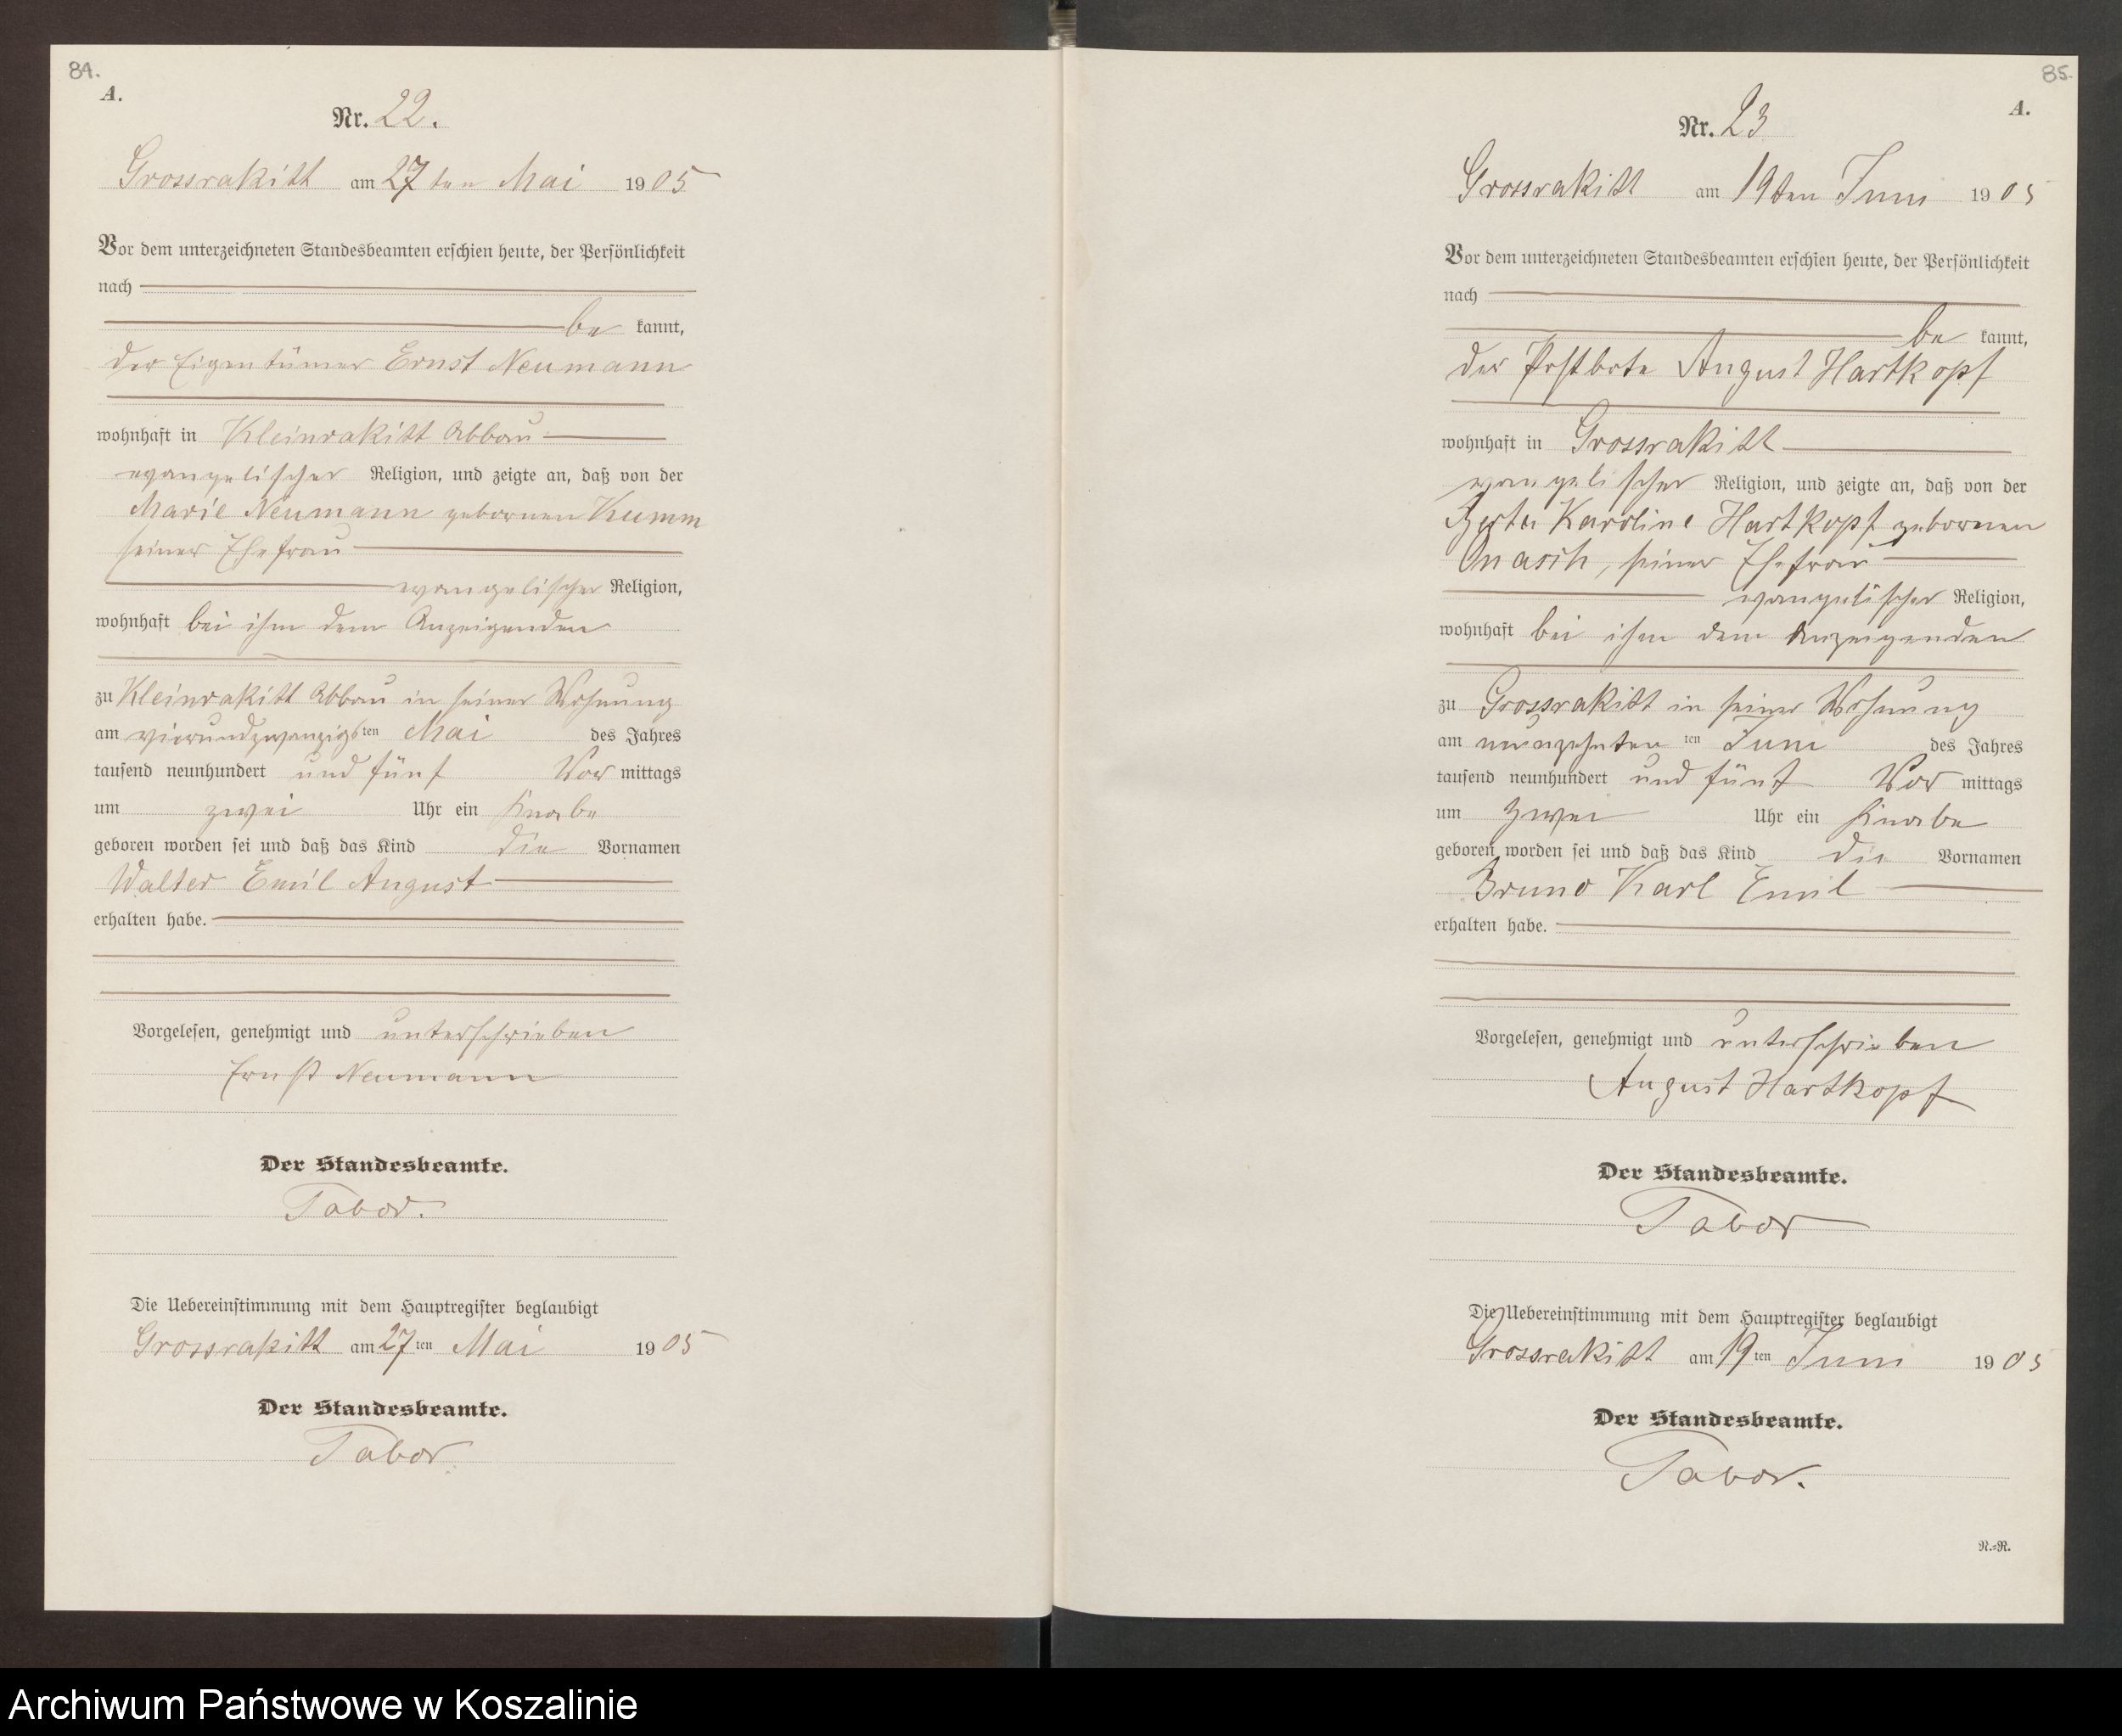 84.
A.
Nr. 22.
Grossrakitt am 27ten Mai 1905
Vor dem unterzeichneten Standesbeamten erschien heute, der Persönlichkeit
nach
be kannt,
der Eigentümer Ernst Neumann
wohnhaft in Kleinrakitt Abbau
evangelischer Religion, und zeigte an, daß von der
Marie Neumann gebornen Kumm
seiner Ehefrau
evangelischer Religion,
wohnhaft bei ihm dem Anzeigenden
zu Kleinrakitt Abbau in seiner Wohnung
am vierundzwanzigsten Mai des Jahres
tausend neunhundert und fünf Vor mittags
um zwei Uhr ein Knabe
geboren worden sei und daß das Kind die Vornamen
Walter Emil August
erhalten habe.
Vorgelesen, genehmigt und unterschrieben
Ernst Neumann
Der Standesbeamte.
Tabor.
Die Uebereinstimmung mit dem Hauptregister beglaubigt
Grossrakitt am 27ten Mai 1905
Der Standesbeamte.
Tabor.
85.
A.
Nr. 23
Grossrakitt am 19ten Juni 1905
Vor dem unterzeichneten Standesbeamten erschien heute, der Persönlichkeit
nach
be kannt,
der Postbote August Hartkopf
wohnhaft in Grossrakitt
evangelischer Religion, und zeigte an, daß von der
Berta Karoline Hartkopf gebornen
Onasch, seiner Ehefrau
evangelischer Religion,
wohnhaft bei ihm dem Anzeigenden
zu Grossrakitt in seiner Wohnung
am neunzehnten ten Juni des Jahres
tausend neunhundert und fünf Vor mittags
um zwei Uhr ein Knabe
geboren worden sei und daß das Kind die Vornamen
Bruno Karl Emil
erhalten habe.
Vorgelesen, genehmigt und unterschrieben
August Hartkopf
Der Standesbeamte.
Tabor
Die Uebereinstimmung mit dem Hauptregister beglaubigt
Grossrakitt am 19ten Juni 1905
Der Standesbeamte.
Tabor.
N.=R.
Archiwum Państwowe w Koszalinie